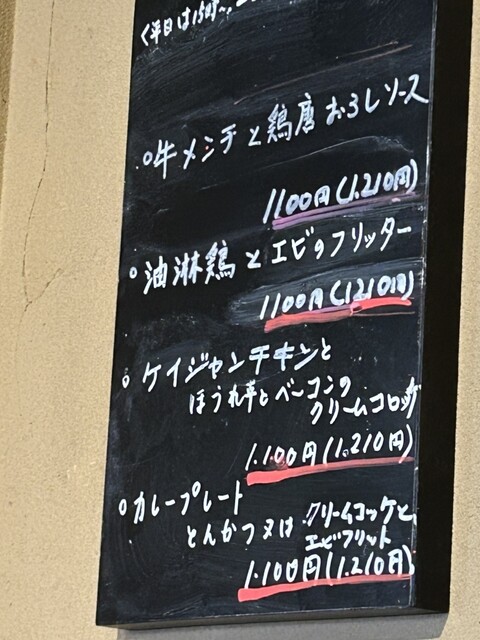 〈平日は15時〜
○牛メンチと鶏唐おろしソース
1100円(1.210円)
○油淋鶏とエビのフリッター
1100円(1210円)
○ケイジャンチキンと
ほうれん草とベーコンの
クリームコロッケ
1.100円(1.210円)
○カレープレート
とんかつ又は クリームコッケと
エビフリット
1.100円(1.210円)